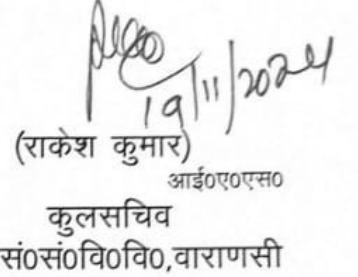 19/11/2024
(राकेश कुमार)
आई०ए०एस०
कुलसचिव
सं०सं०वि०वि०,वाराणसी